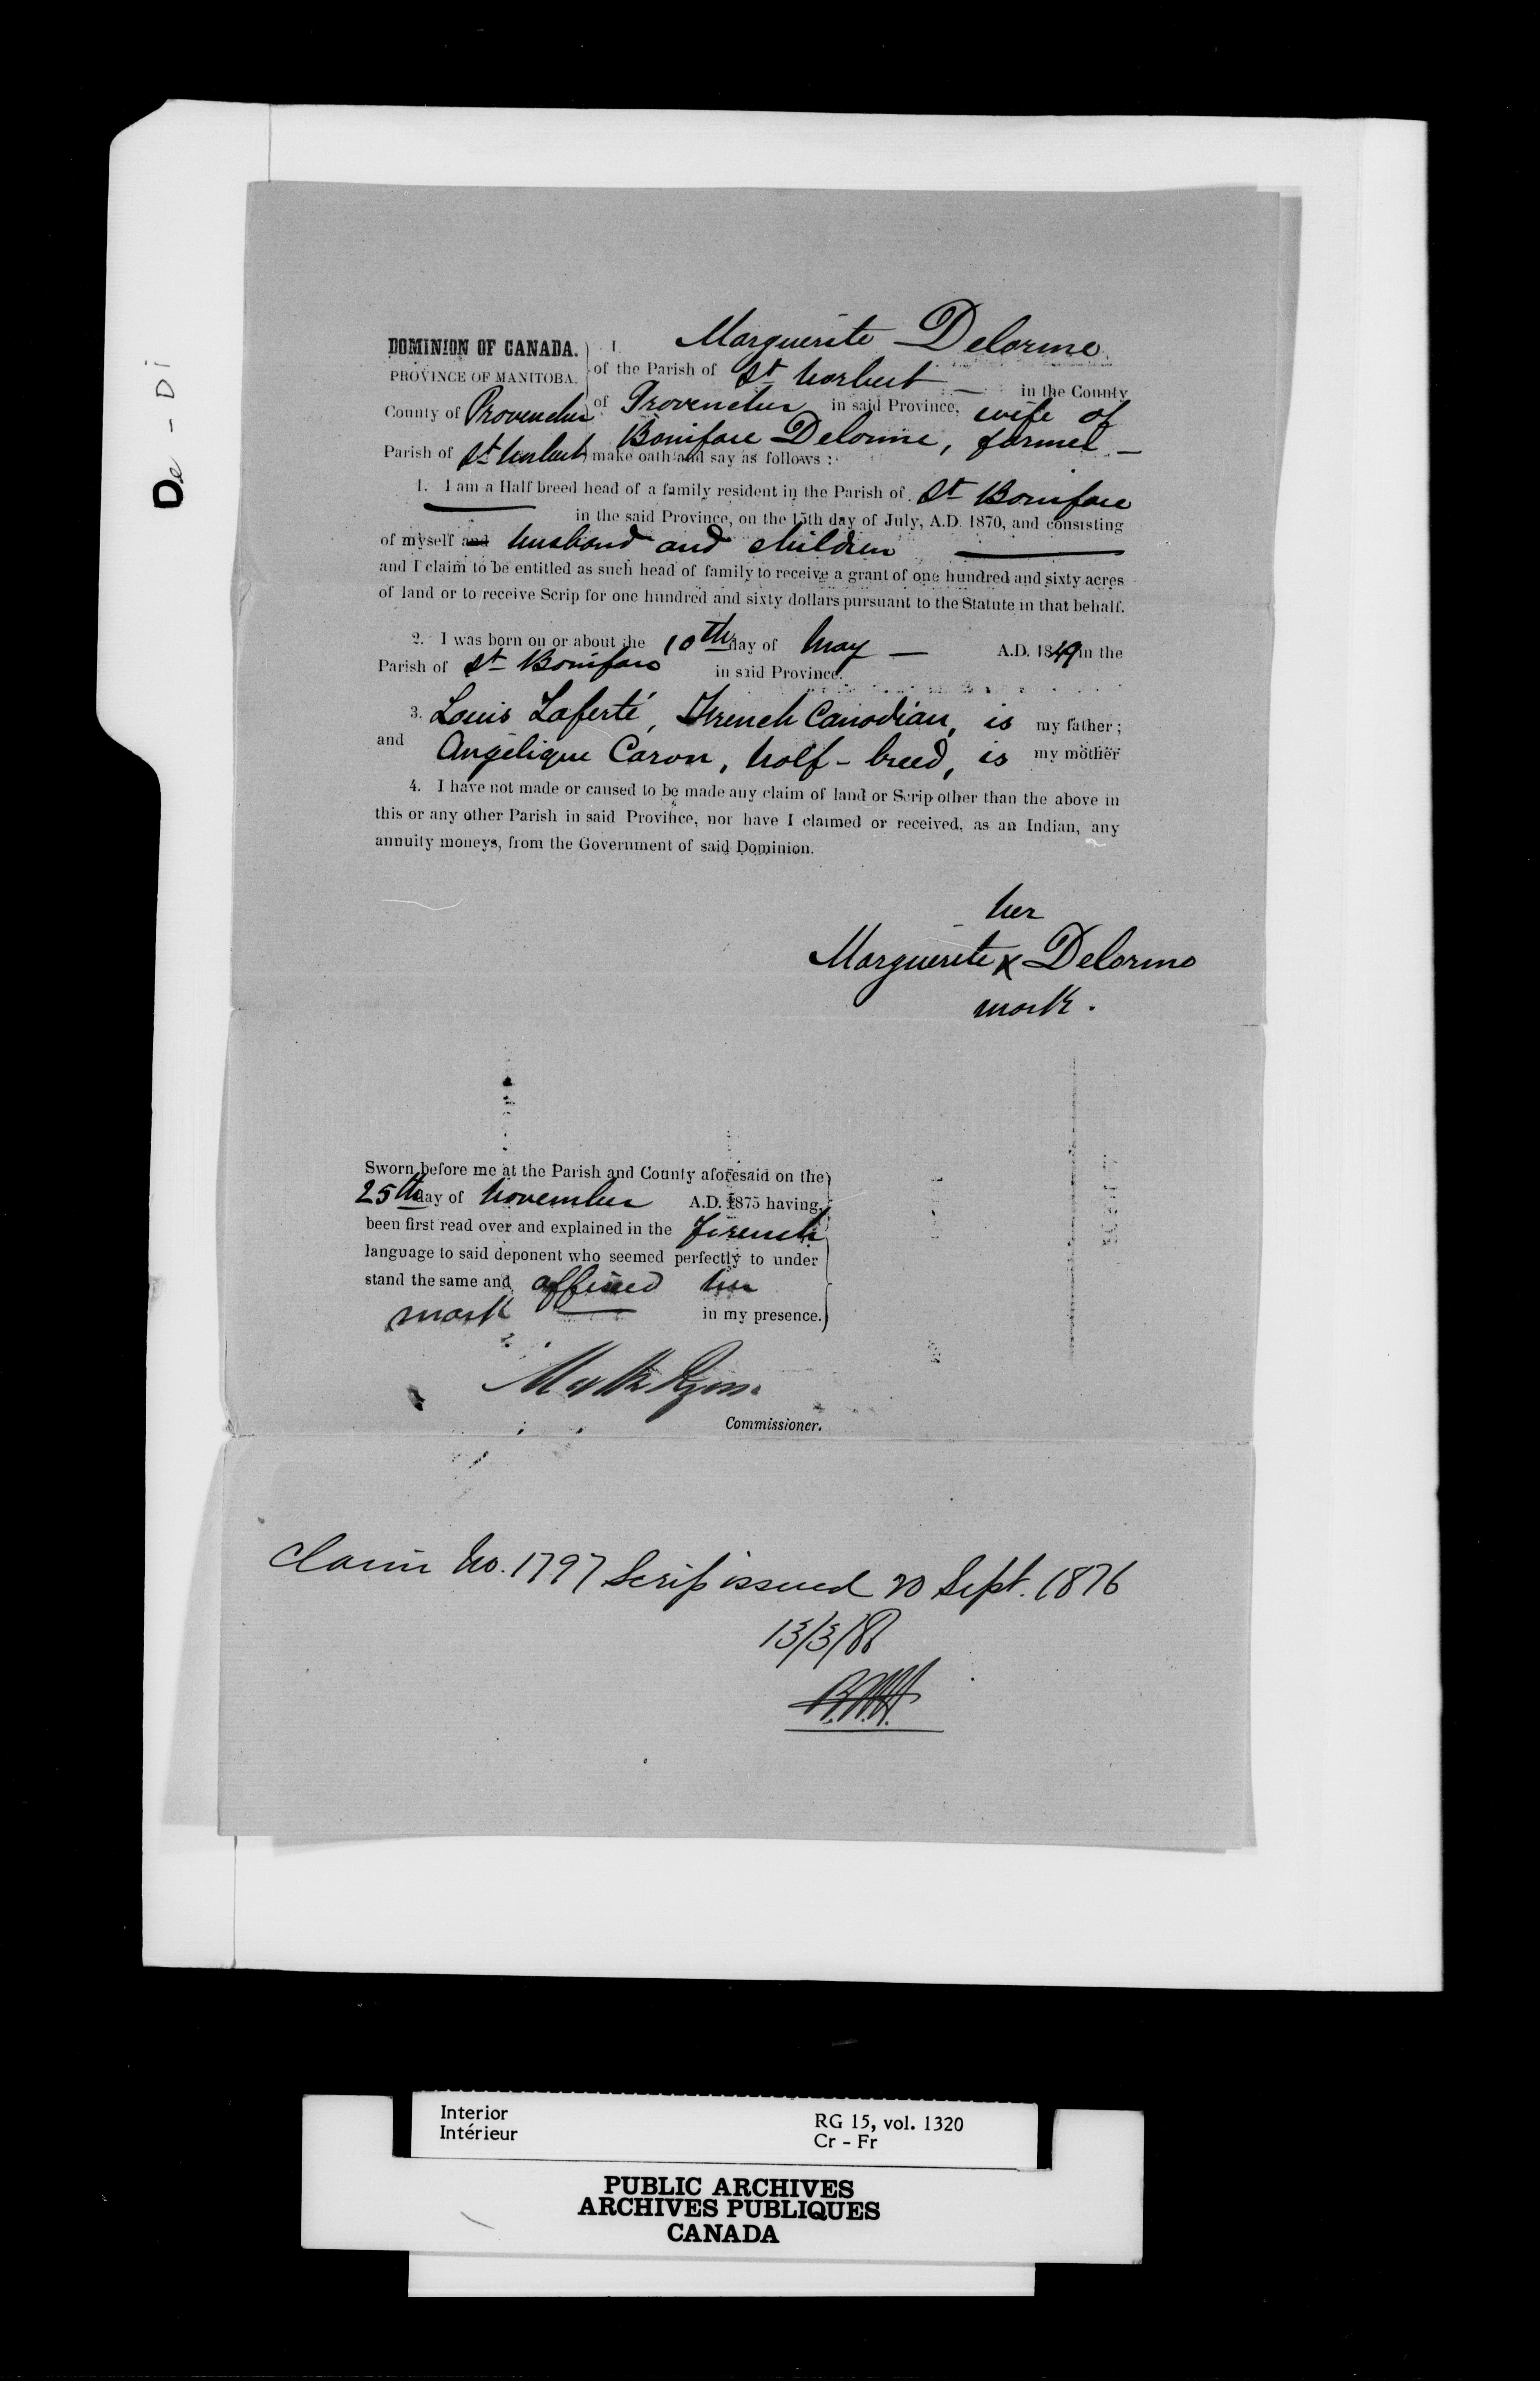 De - Di
DOMINION OF CANADA.
PROVINCE OF MANITOBA.
County of Provencher
Parish of St Norbert
I, Marguerite Delorme
of the Parish of St Norbert — in the County
of Provencher in said Province, wife of
Boniface Delorme, farmer —
make oath and say as follows :
1. I am a Half breed head of a family resident in the Parish of St Boniface
in the said Province, on the 15th day of July, A.D. 1870, and consisting
of myself and husband and children
and I claim to be entitled as such head of family to receive a grant of one hundred and sixty acres
of land or to receive Scrip for one hundred and sixty dollars pursuant to the Statute in that behalf.
2. I was born on or about the 10th day of May — A.D. 1849 in the
Parish of St Boniface in said Province.
3. Louis Laferté, French Canadian, is my father ;
and Angelique Caron, half-breed, is my mother
4. I have not made or caused to be made any claim of land or Scrip other than the above in
this or any other Parish in said Province, nor have I claimed or received, as an Indian, any
annuity moneys, from the Government of said Dominion.
her
Marguerite x Delorme
mark.
Sworn before me at the Parish and County aforesaid on the
25th day of November A.D. 1875 having
been first read over and explained in the French
language to said deponent who seemed perfectly to under
stand the same and affixed her
mark in my presence.
Commissioner.
Claim No. 1797 Scrip issued 20 Sept. 1876
Interior
Intérieur
RG 15, vol. 1320
Cr - Fr
PUBLIC ARCHIVES
ARCHIVES PUBLIQUES
CANADA